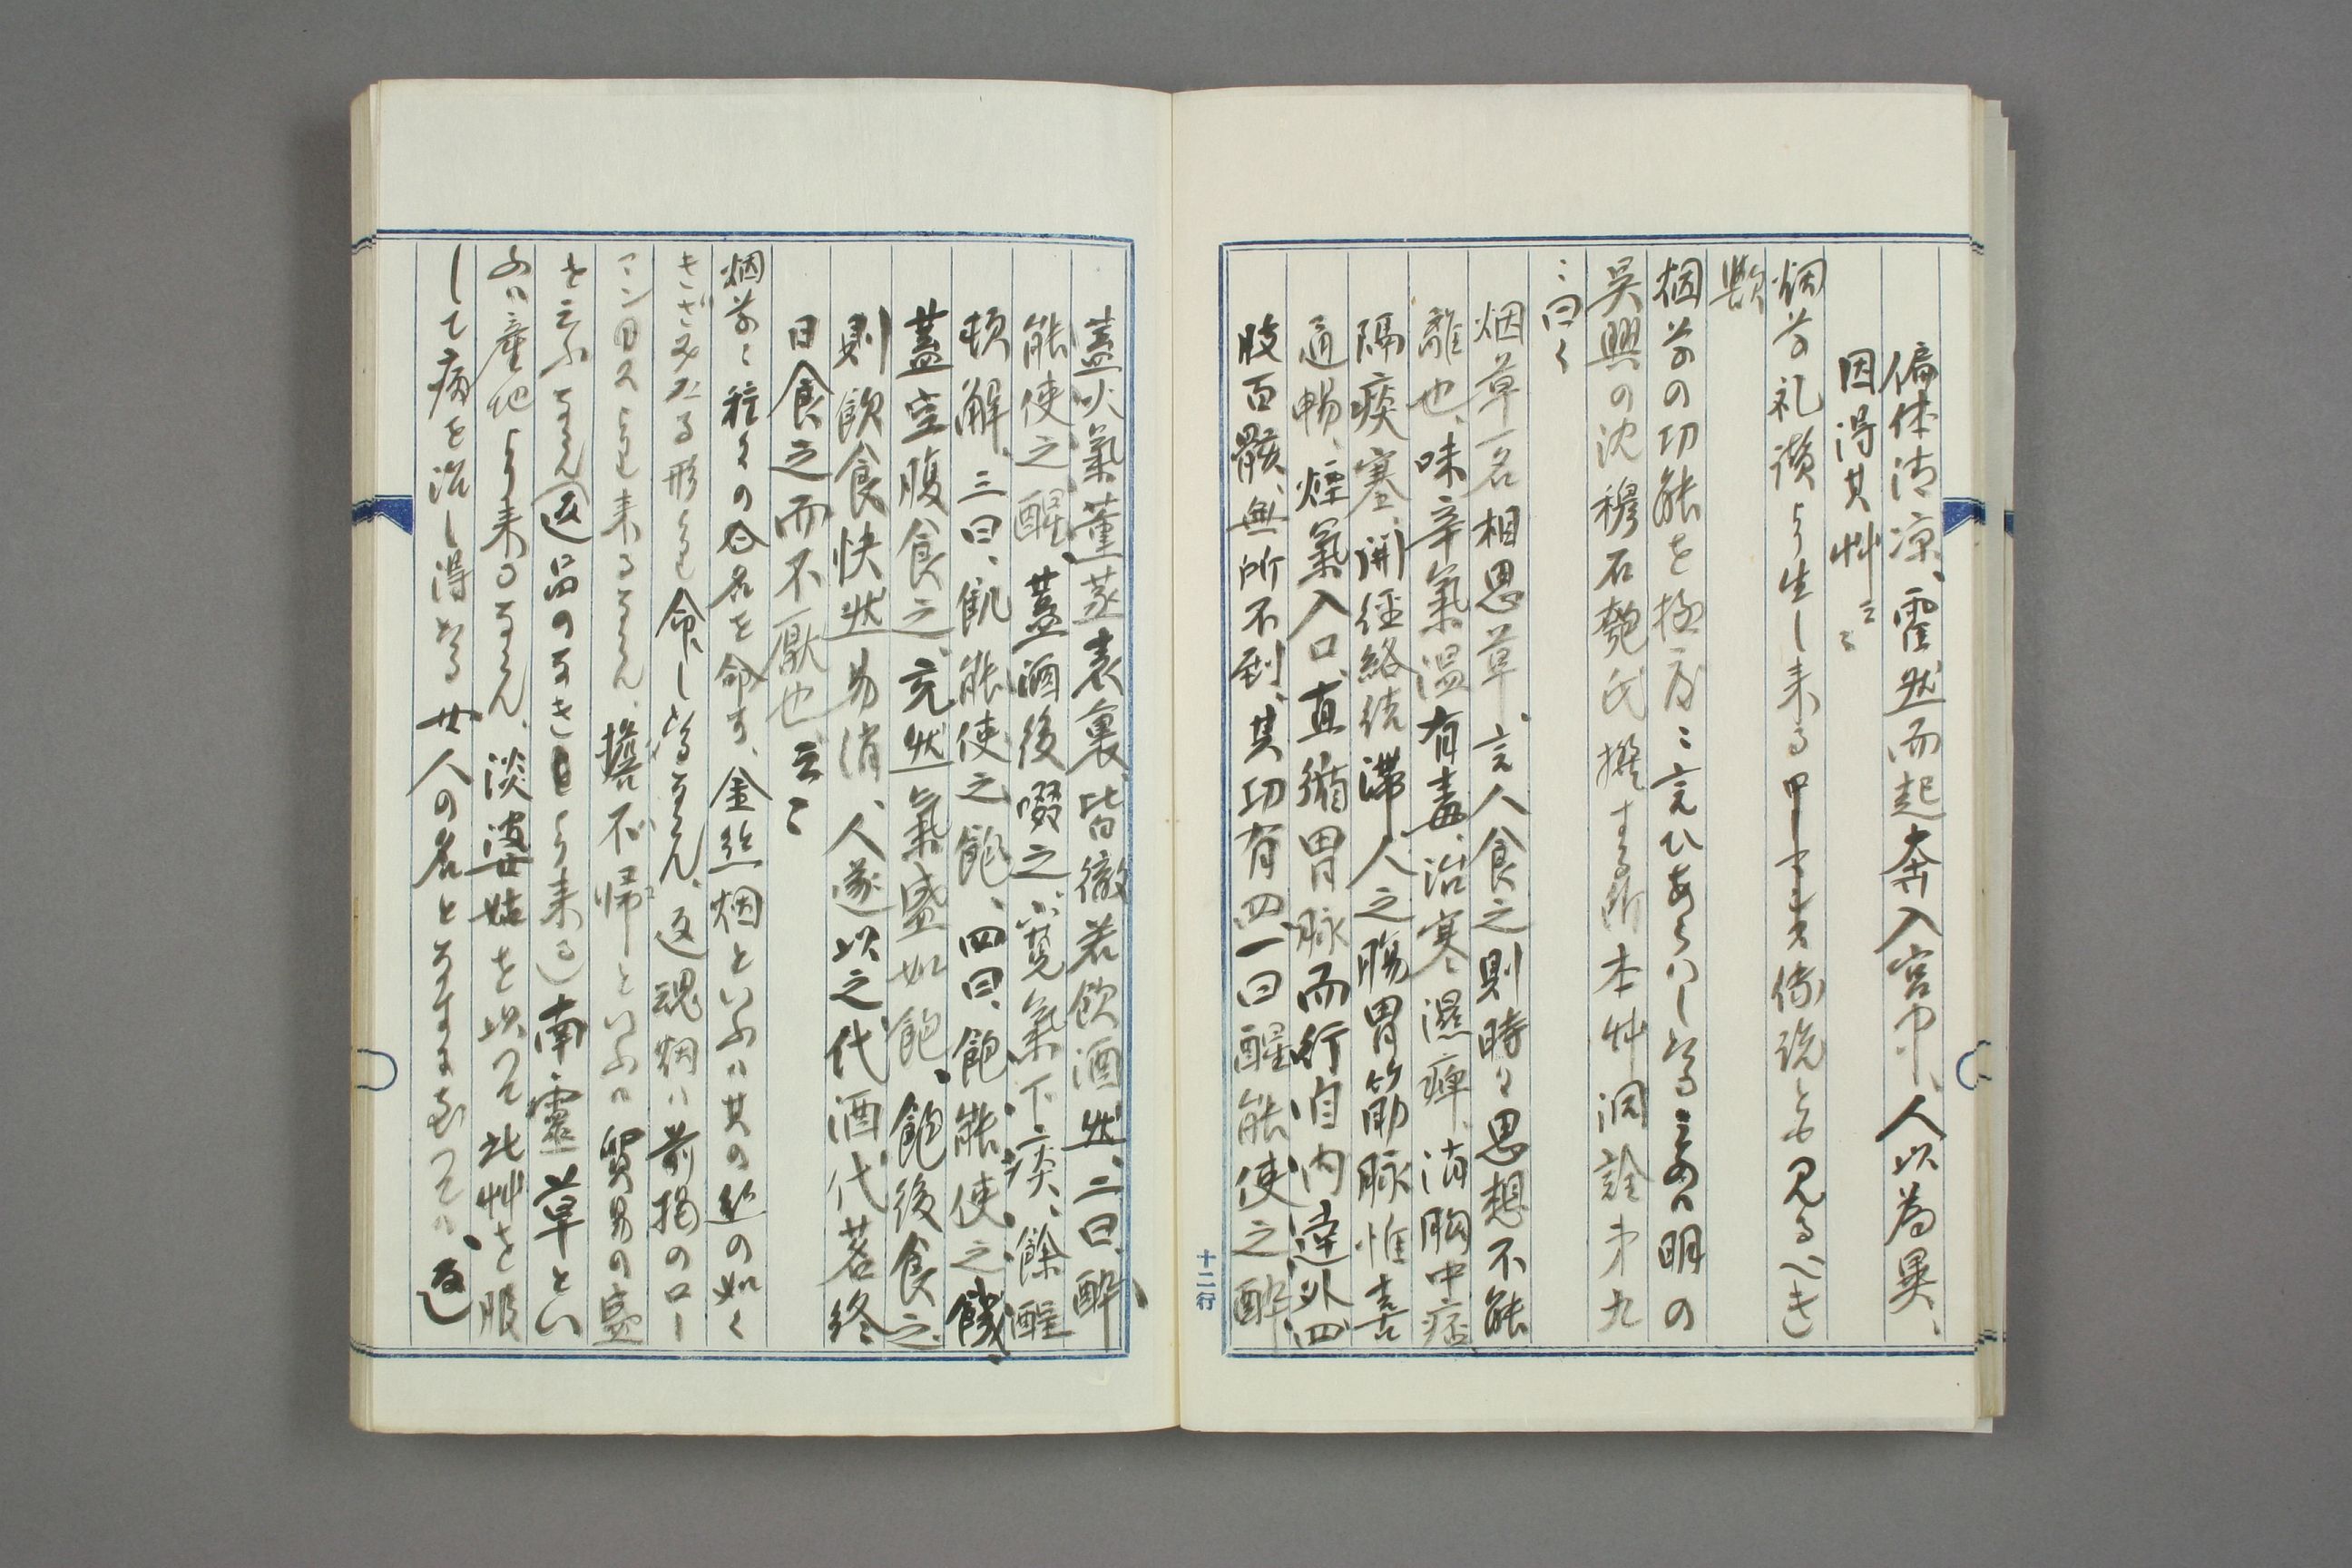 偏体清凉、霍然而起奔入宮中、人以為異、
因得其艸云々
烟草礼讃より生し来る伝説とも見るべき
歟
烟草の功能を極度ニ言ひあらハし明の
呉興の沈穆石匏氏撰する所本艸洞詮第九
ニ曰く
烟草一名相思草、言人食之則時々思想不能
離也、味辛氣温有毒、治寒濕痺、消胸中痞
隔痰塞、開経絡結滞、人之腸胃筋脉惟喜
通暢、煙氣入口、直循胃脉而行自内達外四
肢百骸、無所不到、其功有四一曰醒能使之酔、
蓋火氣薫蒸、表裏皆徹若飲酒然、二曰酔
能使之醒、蓋酒後啜之、寛氣下痰、餘酲
頓解、三曰、飢能使之飽、四曰、飽能使之餓、
蓋空腹食之、充然氣盛如飽、飽後食之、
則飲食快然易消、人遂以之代酒代茗終
日食之而不厭也云々
烟草ニ種々の名を命す、金絲烟といふハ其の絲の如く
きざみたる形より命し、返魂烟ハ前掲のロー
マン口スより来るなるん、擔不帰といふハ貿易の盛
を云ふなるん、南靈草とい
ふハ産地より来るなるん、淡婆姑を以つて此艸を服
して病を治し得たる女人の名となすに至つてハ、
十二行